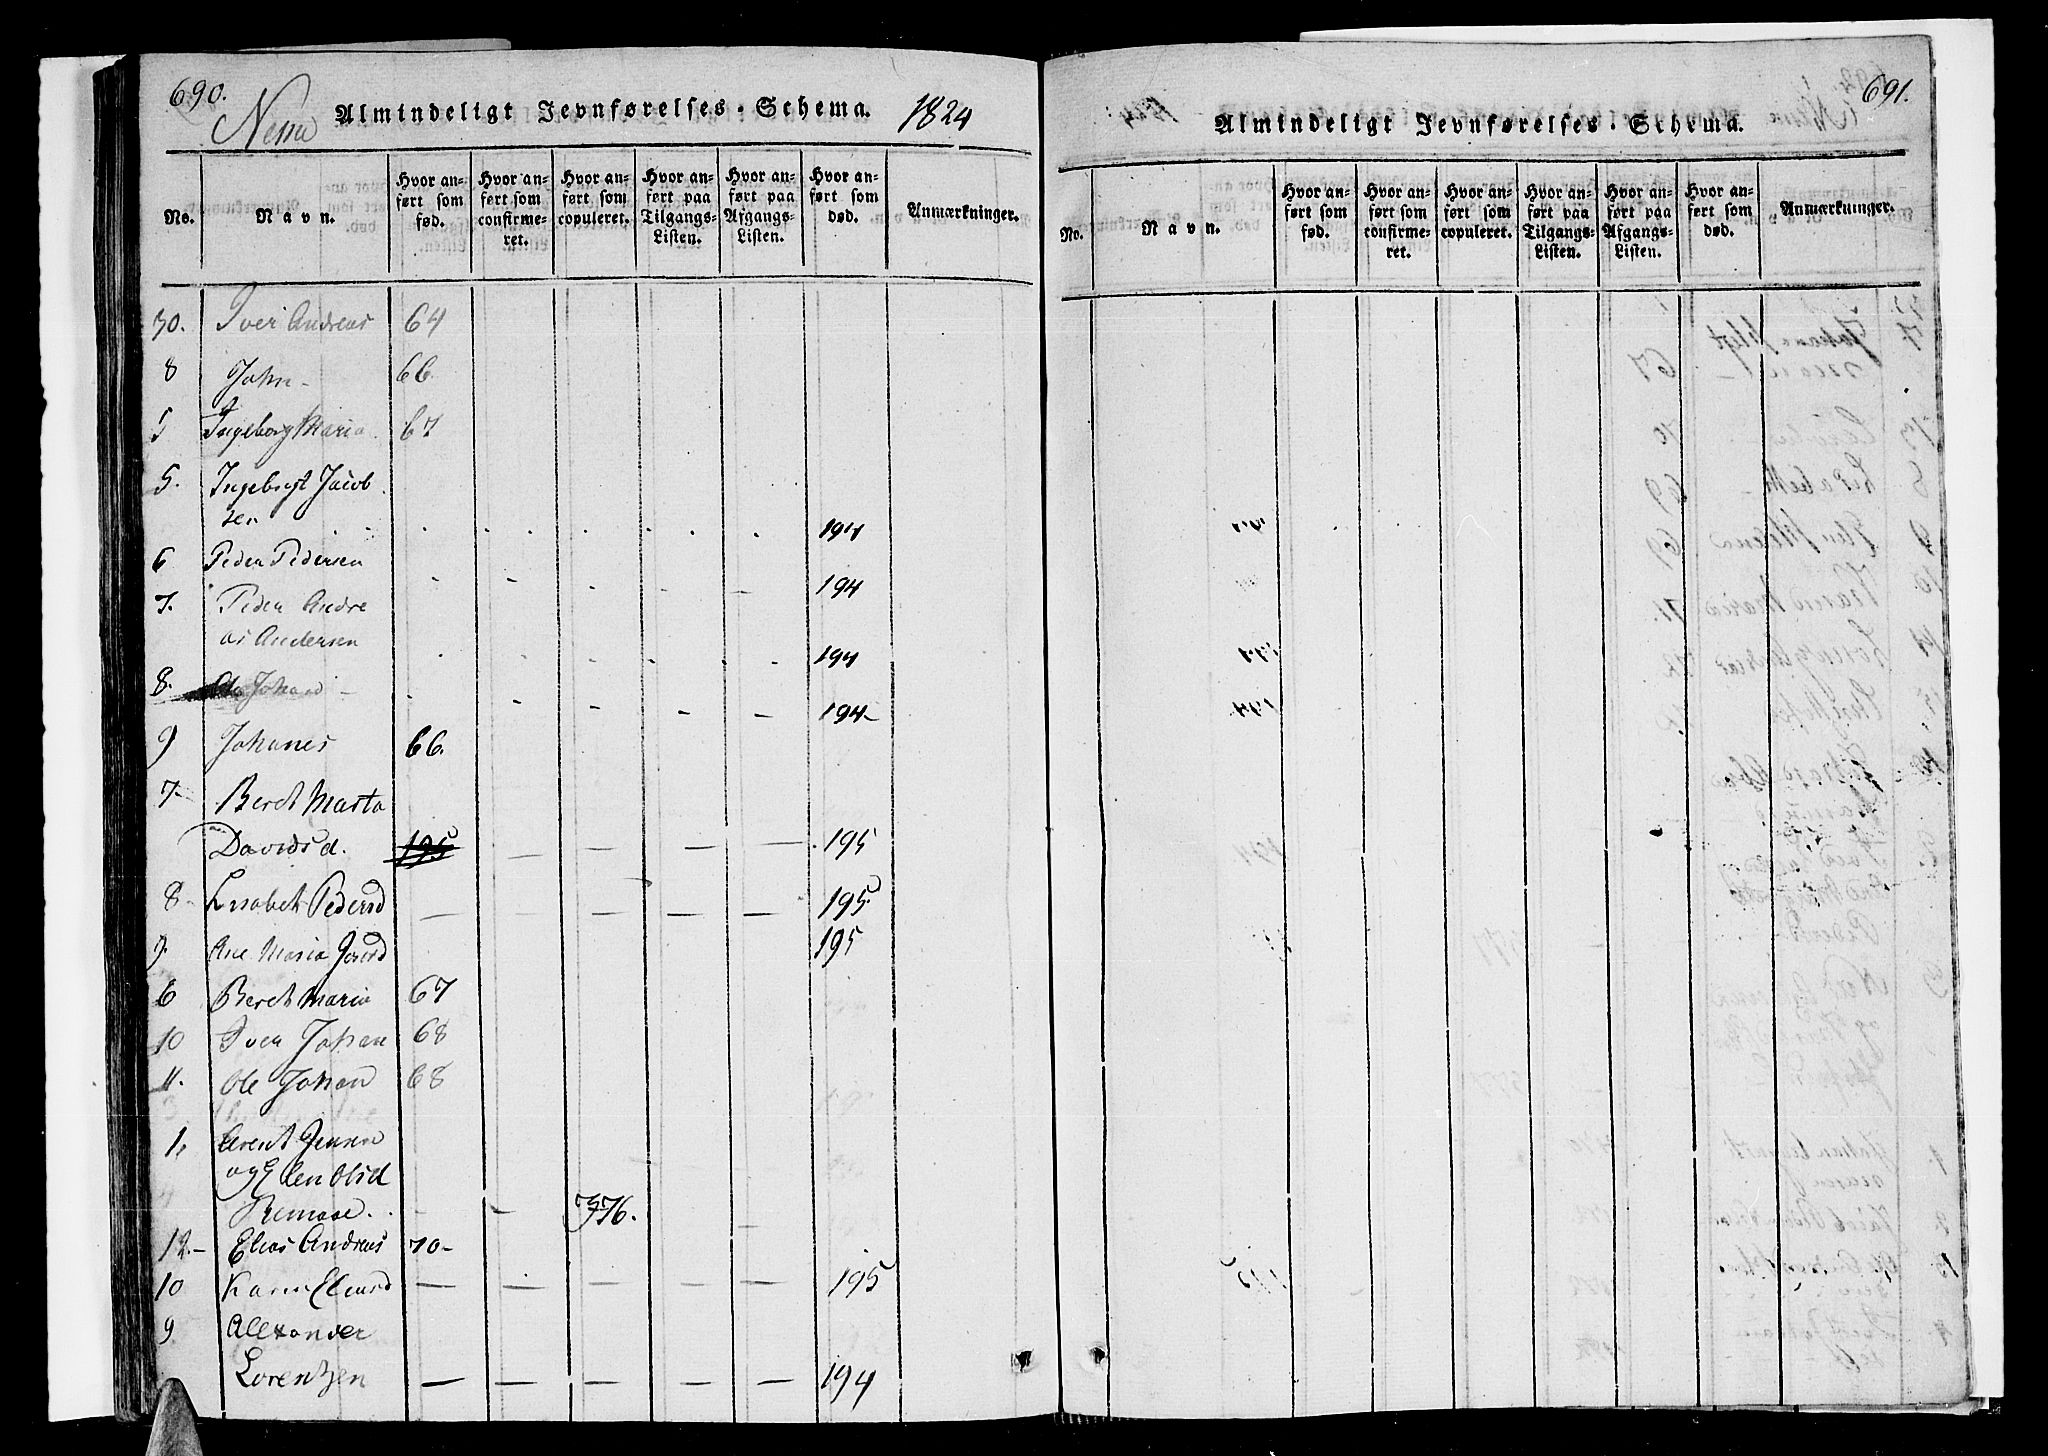 690.
Almindeligt Jevnførelses-Schema.
1824
No.
Navn.
Hvor anført som fød.
Hvor anført som confirmeret.
Hvor anført som copuleret.
Hvor anført paa Tilgangs-Listen.
Hvor anført paa Afgangs-Listen.
Hvor anført som død.
Anmærkninger.
30. Iver Andreas 64
8 John - 66.
5 Ingeborg Maria 67
5. Ingebrigt Jacob
sen 194
6 Peder Pedersen 194
7. Peder Andre
as Andersen 194
8. Johan - 194-
9 Johanes 66.
7- Beret Marta
Davidsd. 195 — — — — 195
8- Lisabeth Pedersd — — — — — 195.
9. Ane Maria Jonsd 195
6 Beret Maria 67
10 Iver Johan 68
11. Ole Johan 68
1, Arent Jensen
og Elen Olsd
376.
12.- Elias Andreas 70-
10 Karen — — — — — 195
9 Alexander
Lorentzen — — — — — 194
691.
Almindeligt Jevnførelses-Schema.
No.
Navn.
Hvor anført som fød.
Hvor anført som confirmeret.
Hvor anført som copuleret.
Hvor anført paa Tilgangs-Listen.
Hvor anført paa Afgangs-Listen.
Hvor anført som død.
Anmærkninger.